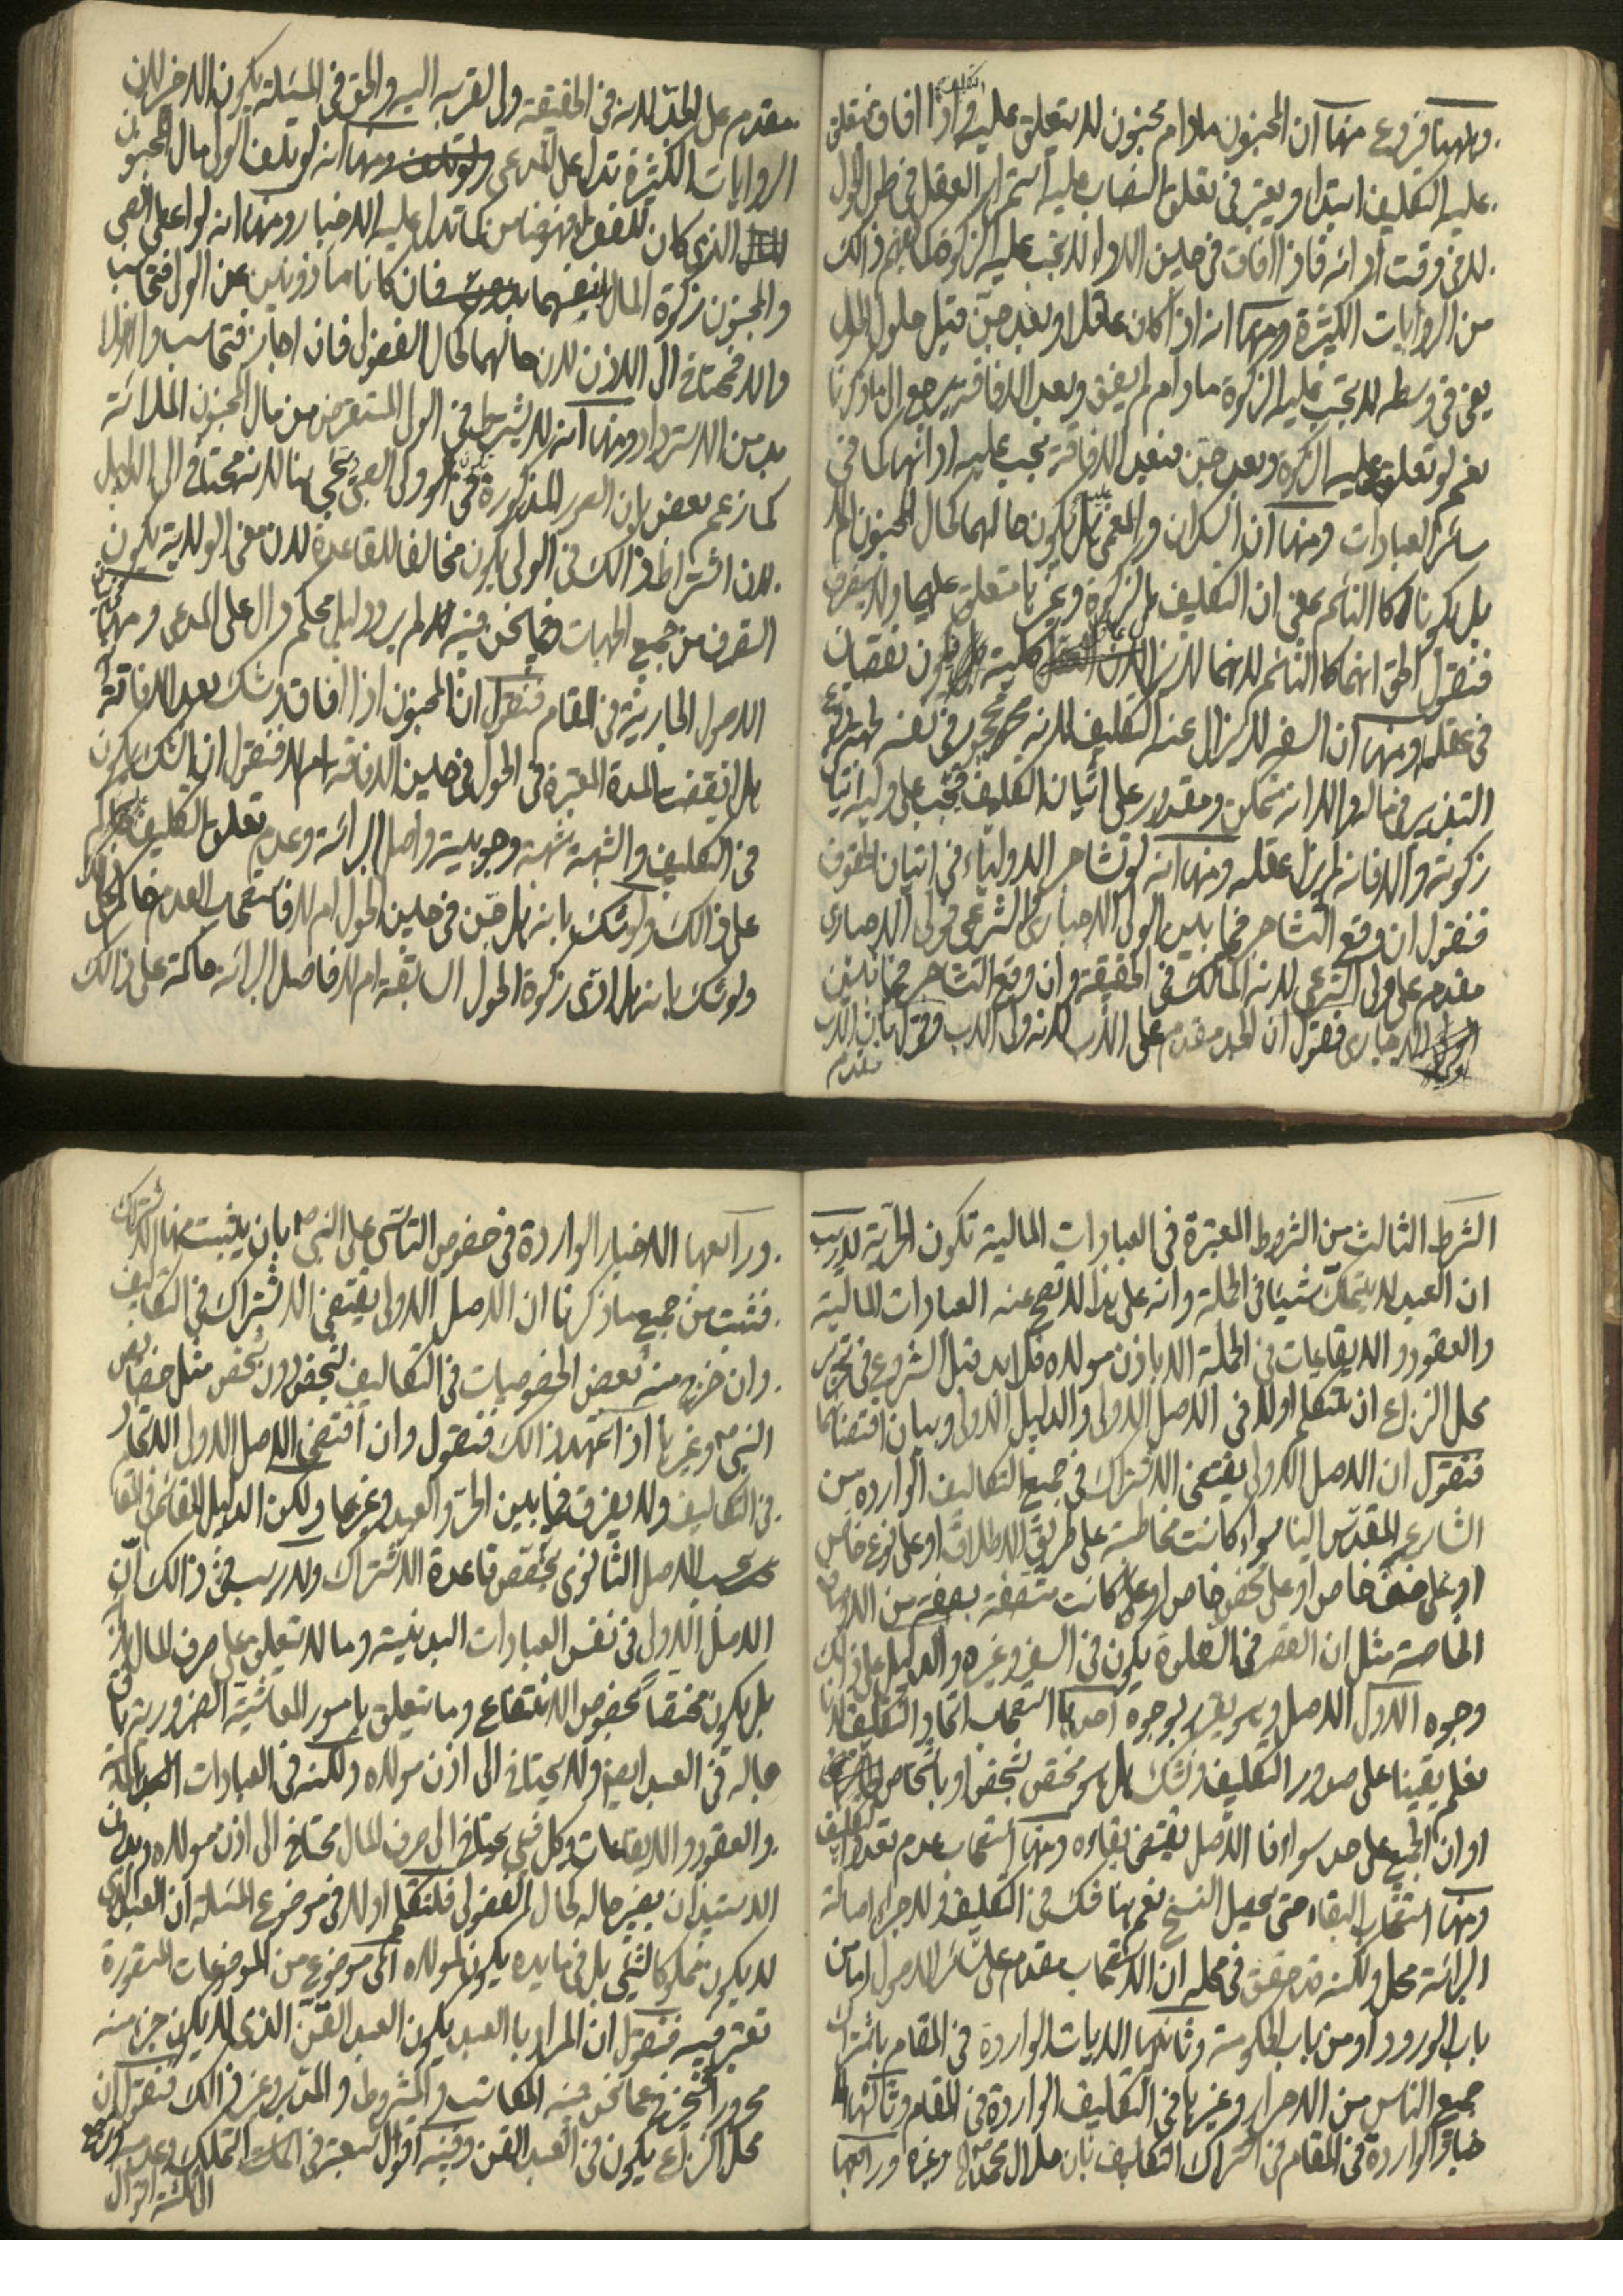 وههنا فروع منها ان المجنون مادام مجنون لا يتعلق عليه فاذا افاق فتعلق
عليه التكليف ابتداء ويعتبر في تعلق النصاب عليه استمرار العقل في طول الحول
لا في وقت ادائه فاذا افاق في حين الاداء لا تجب عليه الزكوة كما يفهم ذالك
من الروايات الكثيرة ومنها انه اذا كان عاقلا وبعد جن قبل حلول الحول
يعني في وسطه لا تجب عليه الزكوة مادام لم يفق وبعد الافاقة يرجع الى ما ذكرنا
نعم لو تعلق عليه الزكوة وبعد جن فبعد الافاقة يجب عليه ادائها كما في
سائر العبادات ومنها ان السكران والمغمى عليه هل يكون حالهما كحال المجنون ام لا
بل يكونا كالنائم يعني ان التكليف بالزكوة وغيرها متعلق عليهما ولا
فنقول الحق انهما كالنائم لانهما لا يزال نقصان
في عقله ومنها ان السفيه لا يزال عنه التكليف لانه محجور في نفسه لجهة
التبذير في ماله والا انه متمكن ومقدور على اتيان التكليف فيجب على وليه اتيان
زكوته والا فانه لم يزل عقله ومنها انه لو تشاجر الاولياء في اتيان الحقوق
فنقول ان وقع التشاجر فيما بين الولي الاجباري والشرعي فولي الاجباري
مقدم على ولي الشرعي لانه المالك في الحقيقة وان وقع التشاجر فيما بين
الاجباري فنقول ان الجد مقدم على الاب لانه ولي الاب وقول بان الاب
مقدم
مقدم على الجد لانه في الحقيقة ولي القريب اليه والحق في المسئلة يكون الاخر لان
الروايات الكثيرة تدل على المدعى ومنها انه لو تلف الولي مال المجنون
الذي كان للنفقة فهو ضامن كما تدل عليه الاخبار ومنها انه لو اعطى الصبي
والمجنون زكوة المال بنفسهما فان كانا ماذونين عن الولي فتحاسب
والا فمحتاج الى الاذن لان حالهما كحال الفضولي فان اجاز فتحاسب والا فلا
بد من الاسترداد ومنها انه لا يشترط في الولي المستقرض من مال المجنون الملائة
كما زعم بعض بان الصور المذكورة في ولي الصبي تجئ هنا لانه محتاج الى الدليل
لان اشتراط ذالك في الولي يكون مخالفا للقاعدة لان معنى الولاية يكون
التصرف من جميع الجهات وفيما نحن فيه لم يرد دليل محكم دال على المدعى ومنها
الاصول الجارية في المقام فنقول ان المجنون اذا افاق وشك بعد الافاقة
هل انقضت المدة المعتبرة في الحول في حين الافاقة ام لا فنقول ان الشك يكون
في التكليف والشبهة شبهة وجوبية واصل البرائة وعدم تعلق التكليف
على ذالك ولو شك بانه هل جن في حين الحول ام لا فاستصحاب العدم حاكم
ولو شك بانه هل ادى زكوة الحول السابقة ام لا فاصل البرائة حاكمة على ذالك
الشرط الثالث من الشروط المعتبرة في العبادات المالية تكون الحرية لا ريب
ان العبد لا يتملك شيئا في الجملة وانه على هذا لا تصح عنه العبادات المالية
والعقود والايقاعات في الجملة الا باذن مولاه فلا بد قبل الشروع في تحرير
محل النزاع ان نتكلم اولا في الاصل الاولي والدليل الاولي وبيان اقتضائهما
فنقول ان الاصل الاولي يقتضي الاشتراك في جميع التكاليف الوارده من
الشارع المقدس الينا سواء كانت مخاطبة على طريق الاطلاق او على نوع خاص
او على صنف خاص او على شخص خاص او كانت متصفة بصفة من الاوصاف
الخاصة مثل ان القصر في الصلوة يكون في السفر وغيره والدليل على ذالك
وجوه الاول الاصل وهو يقرر بوجوه احدها استصحاب اتحاد التكليف
نعلم يقينا على صدور التكليف ونشك هل هو مختص بشخص او باشخاص
او ان الجميع على حد سواء فالاصل يقتضي بقاءه ومنها استصحاب عدم تعدد التكليف
ومنها استصحاب البقاء حتى يحصل النسخ نعم هنا شك في التكليف ولاجراء اصالة
البرائة محل ولكنه قد حقق في محله ان الاستصحاب مقدم على سائر الاصول اما من
باب الورود او من باب الحكومة وثانيها الايات الواردة في المقام باشتراك
جميع الناس من الاحرار وغيرها في التكاليف الواردة في المقام وثالثها الا
خبار الواردة في المقام في اشتراك التكاليف بان حلال محمد ص الخ وغيره ورابعها
ورابعها الاخبار الواردة في خصوص التاسي على النبي ص بان يثبت منها الاشتراك
فثبت من جميع ما ذكرنا ان الاصل الاولي يقتضي الاشتراك في التكاليف
وان خرج منه بعض الخصوصيات في التكاليف لشخص دون شخص مثل خصائص
النبي ص وغيرها اذا تمهد ذالك فنقول وان اقتضى الاصل الاولي الاتحاد
في التكاليف ولا يفرق فيما بين الحر والعبد وغيرهما ولكن الدليل القائم في المقام
بحسب الاصل الثانوي يخصص قاعدة الاشتراك ولا ريب في ذالك لان
الاصل الاولي في نفس العبادات البدنية وما لا يتعلق على صرف المال
بل يكون مختصا بخصوص الانتفاع وما يتعلق بامور المعاشية الضرورية باق
بحاله في العبد ايضا ولا يحتاج الى اذن مولاه ولكنه في العبادات المالية
والعقود والايقاعات وكل شئ يحتاج الى صرف المال محتاج الى اذن مولاه وبدون
الاستيذان يصير حاله كحال الفضولي فلنتكلم اولا في موضوع المسئلة ان العبد الذي
لا يكون مملوكا لشئ بل في ما يده يكون لمولاه اي موضوع من الموضوعات المتصورة
تعتبر فيه فنقول ان المراد بالعبد يكون العبد القن الذي لا يكون جزء منه
محررا فيخرج عما نحن فيه المكاتب والمشروط والمدبر وغير ذالك فنقول ان
محل النزاع يكون في العبد القن وفيه اقوال سبعة في التملك وعدمه